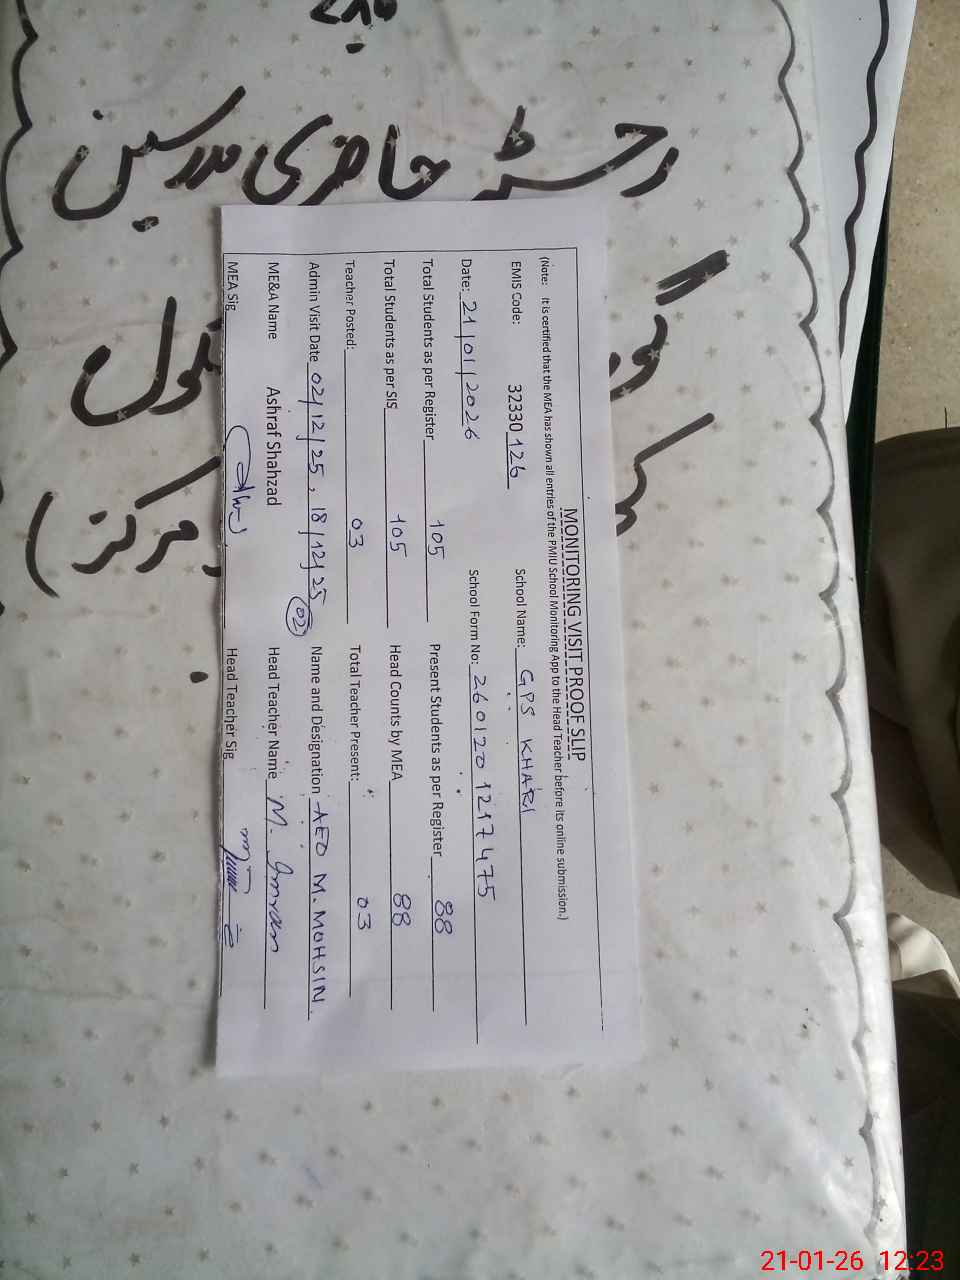 رجسٹر حاضری مدرسین
مرکز)
MONITORING VISIT PROOF SLIP
(Note: It is certified that the MEA has shown all entries of the PMIU School Monitoring App to the Head Teacher before its online submission.)
EMIS Code: 32330126 School Name: GPS KHARI
Date: 21/01/2026 School Form No: 2601201217475
Total Students as per Register 105 Present Students as per Register 88
Total Students as per SIS 105 Head Counts by MEA 88
Teacher Posted: 03 Total Teacher Present: 03
Admin Visit Date 02/12/25, 18/12/25 02 Name and Designation AEO M. MOHSIN.
ME&A Name Ashraf Shahzad Head Teacher Name M. Imran
MEA Sig Head Teacher Sig
21-01-26 12:23